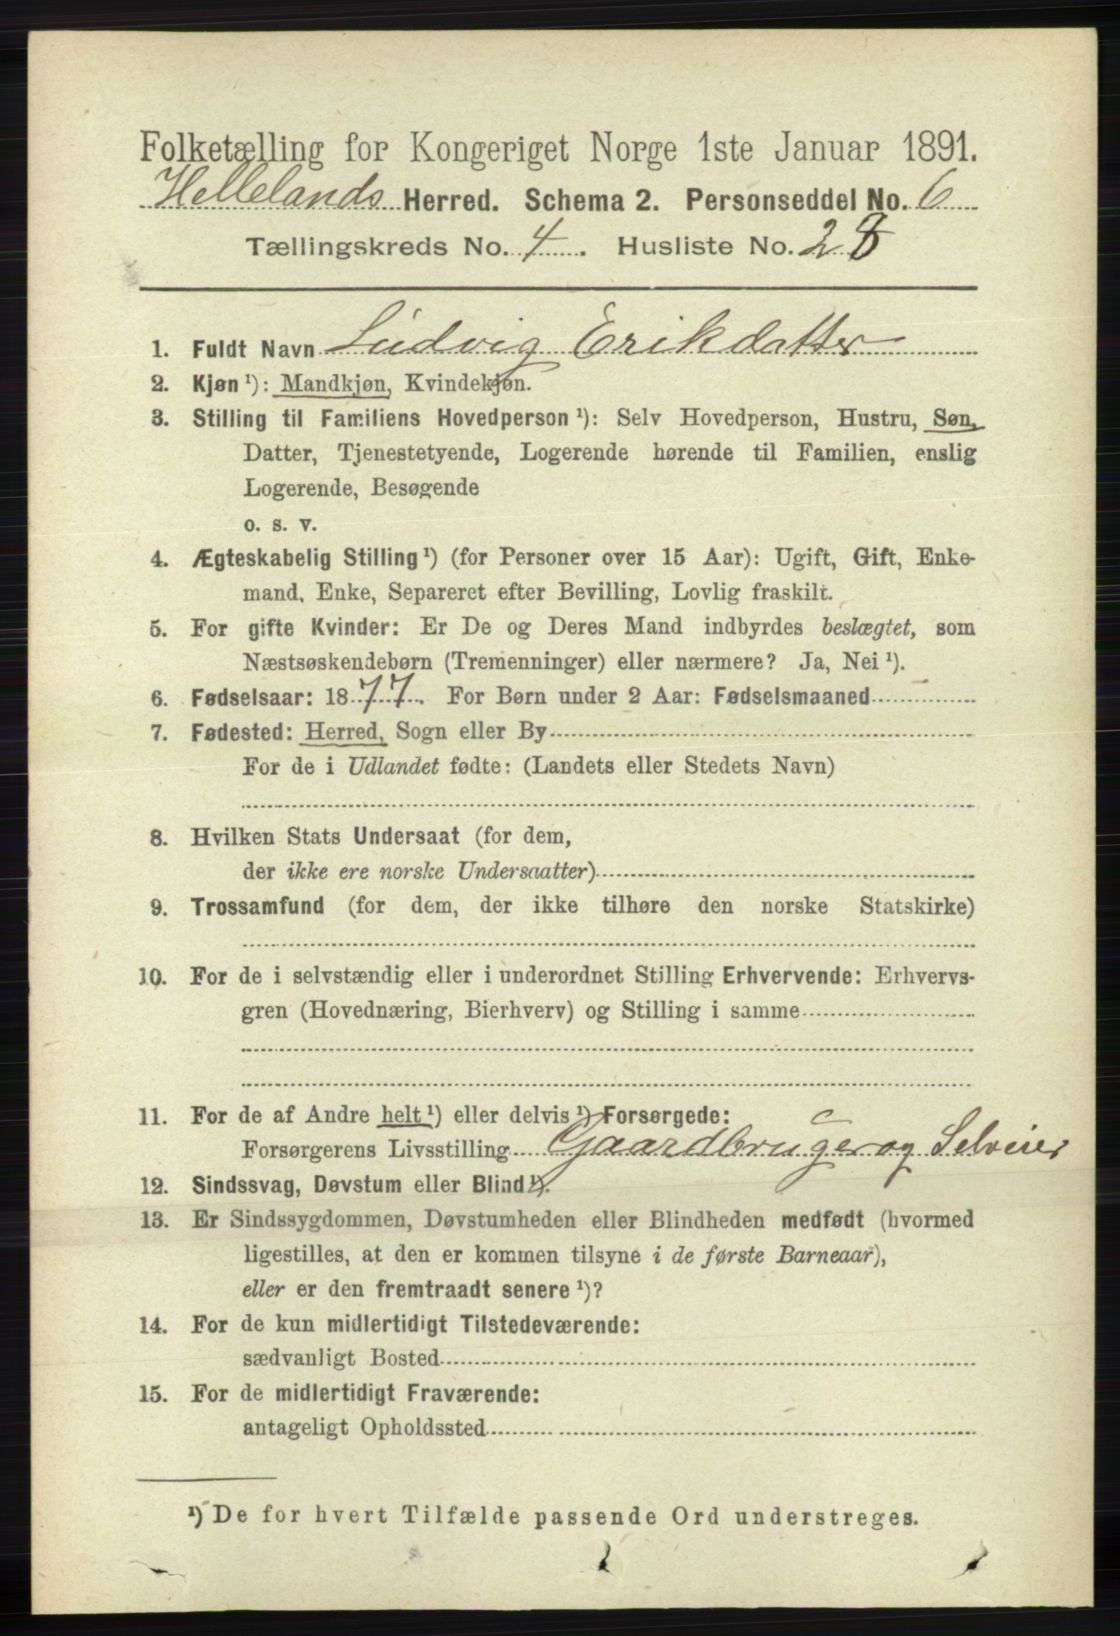 Folketælling for Kongeriget Norge 1ste Januar 1891.
Hellelands Herred. Schema 2. Personseddel No. 6
Tællingskreds No. 4. Husliste No. 28
1. Fuldt Navn Ludvig Erikdatter
2. Kjøn ¹): Mandkjøn, Kvindekjøn.
3. Stilling til Familiens Hovedperson ¹): Selv Hovedperson, Hustru, Søn,
Datter, Tjenestetyende, Logerende hørende til Familien, enslig
Logerende, Besøgende
o. s. v.
4. Ægteskabelig Stilling ¹) (for Personer over 15 Aar): Ugift, Gift, Enke-
mand, Enke, Separeret efter Bevilling, Lovlig fraskilt.
5. For gifte Kvinder: Er De og Deres Mand indbyrdes beslægtet, som
Næstsøskendebørn (Tremenninger) eller nærmere? Ja, Nei ¹).
6. Fødselsaar: 1877. For Børn under 2 Aar: Fødselsmaaned
7. Fødested: Herred, Sogn eller By
For de i Udlandet fødte: (Landets eller Stedets Navn)
8. Hvilken Stats Undersaat (for dem,
der ikke ere norske Undersaatter)
9. Trossamfund (for dem, der ikke tilhøre den norske Statskirke)
10. For de i selvstændig eller i underordnet Stilling Erhvervende: Erhvervs-
gren (Hovednæring, Bierhverv) og Stilling i samme
11. For de af Andre helt ¹) eller delvis ¹) Forsørgede:
Forsørgerens Livsstilling Gaardbruger og Selveier
12. Sindssvag, Døvstum eller Blind ¹).
13. Er Sindssygdommen, Døvstumheden eller Blindheden medfødt (hvormed
ligestilles, at den er kommen tilsyne i de første Barneaar),
eller er den fremtraadt senere ¹)?
14. For de kun midlertidigt Tilstedeværende:
sædvanligt Bosted
15. For de midlertidigt Fraværende:
antageligt Opholdssted
¹) De for hvert Tilfælde passende Ord understreges.